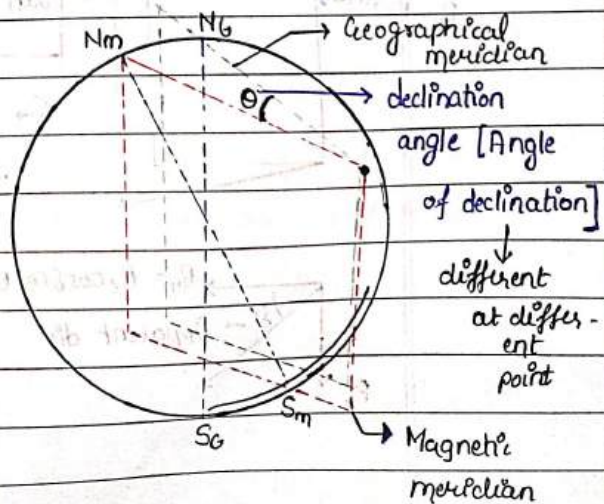 Nm
NG
Geographical
meridian
θ
declination
angle [Angle
of declination]
different
at differ-
ent
point
SG
Sm
Magnetic
meridian